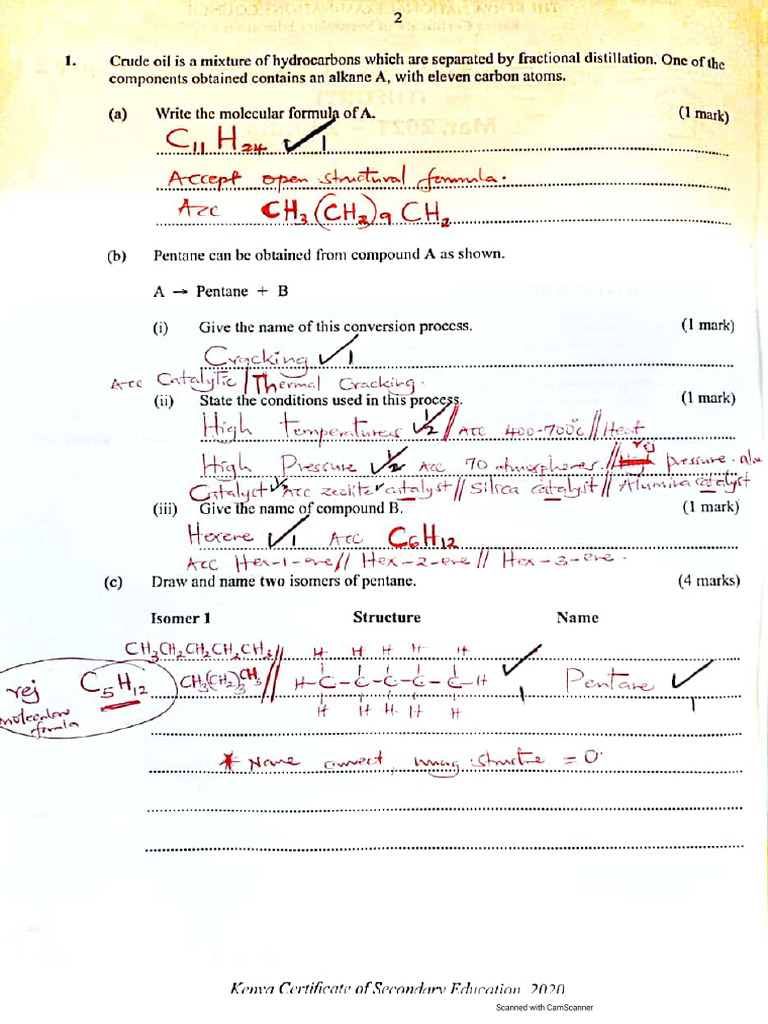 2
1. Crude oil is a mixture of hydrocarbons which are separated by fractional distillation. One of the
components obtained contains an alkane A, with eleven carbon atoms.
(a) Write the molecular formula of A. (1 mark)
C11 H24 ✓1
Accept open structural formula.
Acc CH3(CH2)9 CH2
(b) Pentane can be obtained from compound A as shown.
A → Pentane + B
(i) Give the name of this conversion process. (1 mark)
Cracking ✓1
Acc Catalytic / Thermal Cracking.
(ii) State the conditions used in this process. (1 mark)
High temperatures ✓½ // Acc 400-700°C // Heat
High Pressure ✓½ Acc 70 atmospheres. // rej pressure
Catalyst ✓½ Acc zeolite catalyst // Silica catalyst // Alumina catalyst
(iii) Give the name of compound B. (1 mark)
Hexene ✓1 Acc C6H12
Acc Hex-1-ene // Hex-2-ene // Hex-3-ene.
(c) Draw and name two isomers of pentane. (4 marks)
Isomer 1 Structure Name
CH3CH2CH2CH2CH3 // H H H H H
rej C5H12 CH3(CH2)3CH3 // H-C-C-C-C-C-H ✓1 Pentane ✓1
molecular formula H H H H H
* Name correct, wrong structure = 0
Kenya Certificate of Secondary Education, 2020
Scanned with CamScanner